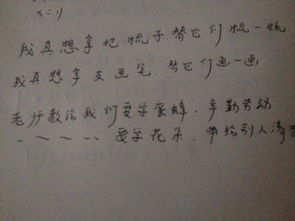 我真想拿把梳子替它们梳一梳
我真想拿支画笔.替它们画一画
老师教给我们要学蜜蜂.辛勤劳动
、、、、、要学花朵.带给别人清